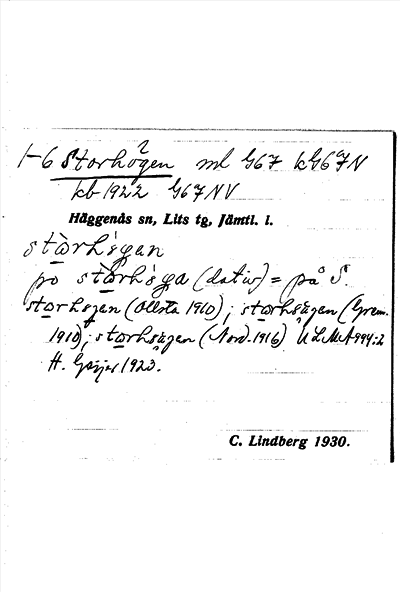 1-6 Storhögen ml G67 kG67N
kb 1922 G67NV
Häggenås sn, Lits tg, Jämtl. l.
stàrhʹs̀gan
på stàrhʹs̀ga (dativ) = på S.
starhsgen (Ollsta 1910); starhsägen (Grem.
1910); starhsägen (Nord. 1916) ULMA 994:2
H. Geijer 1923.
C. Lindberg 1930.